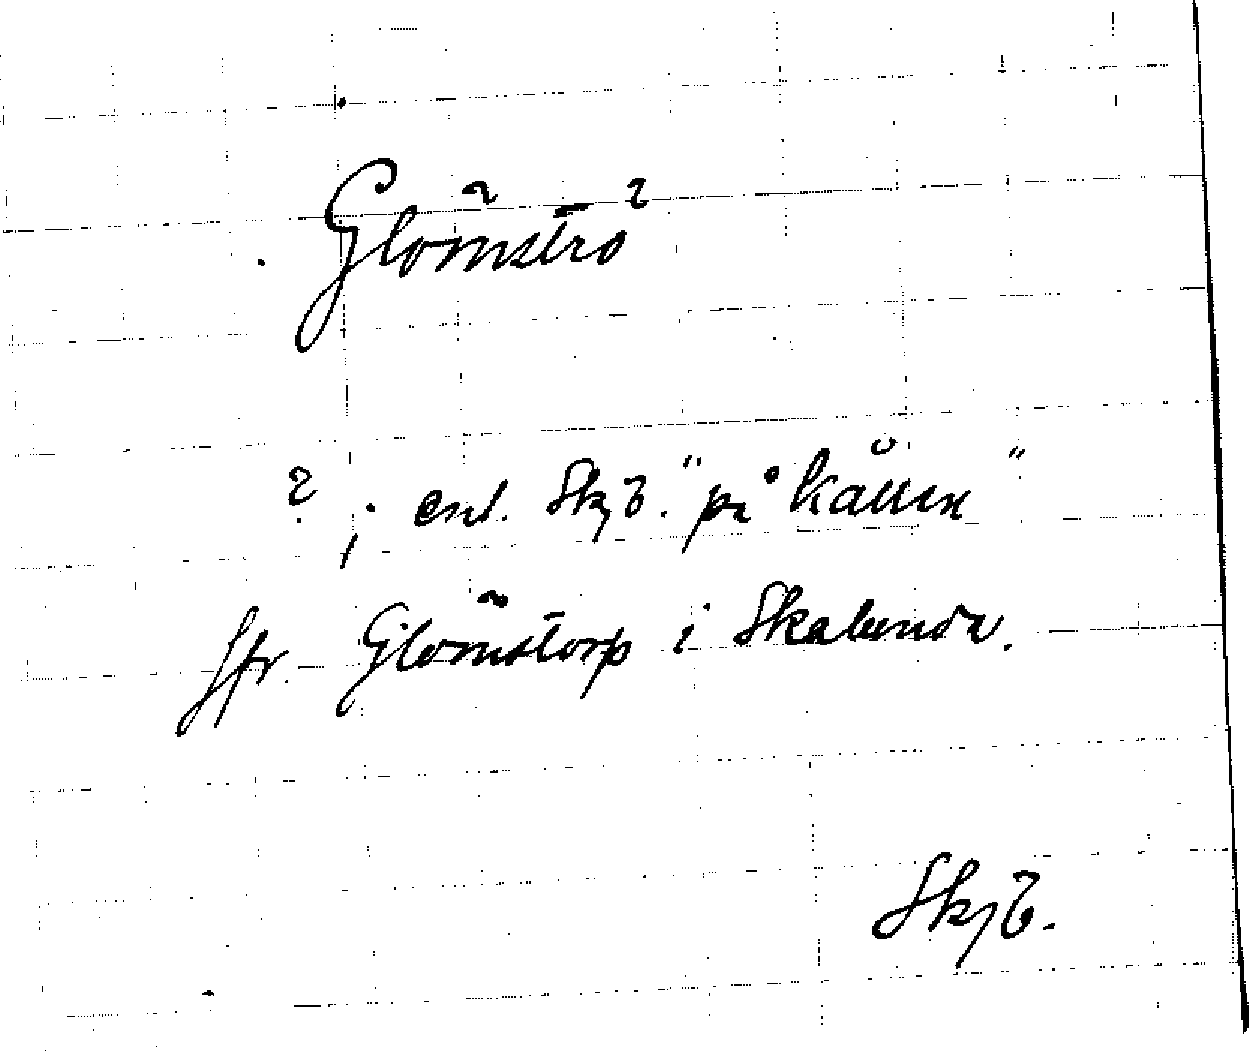 Glömströ
? ; enl. Skjb. "på kållen"
Jfr. Glömstorp i Skatelunda.
Skjb.